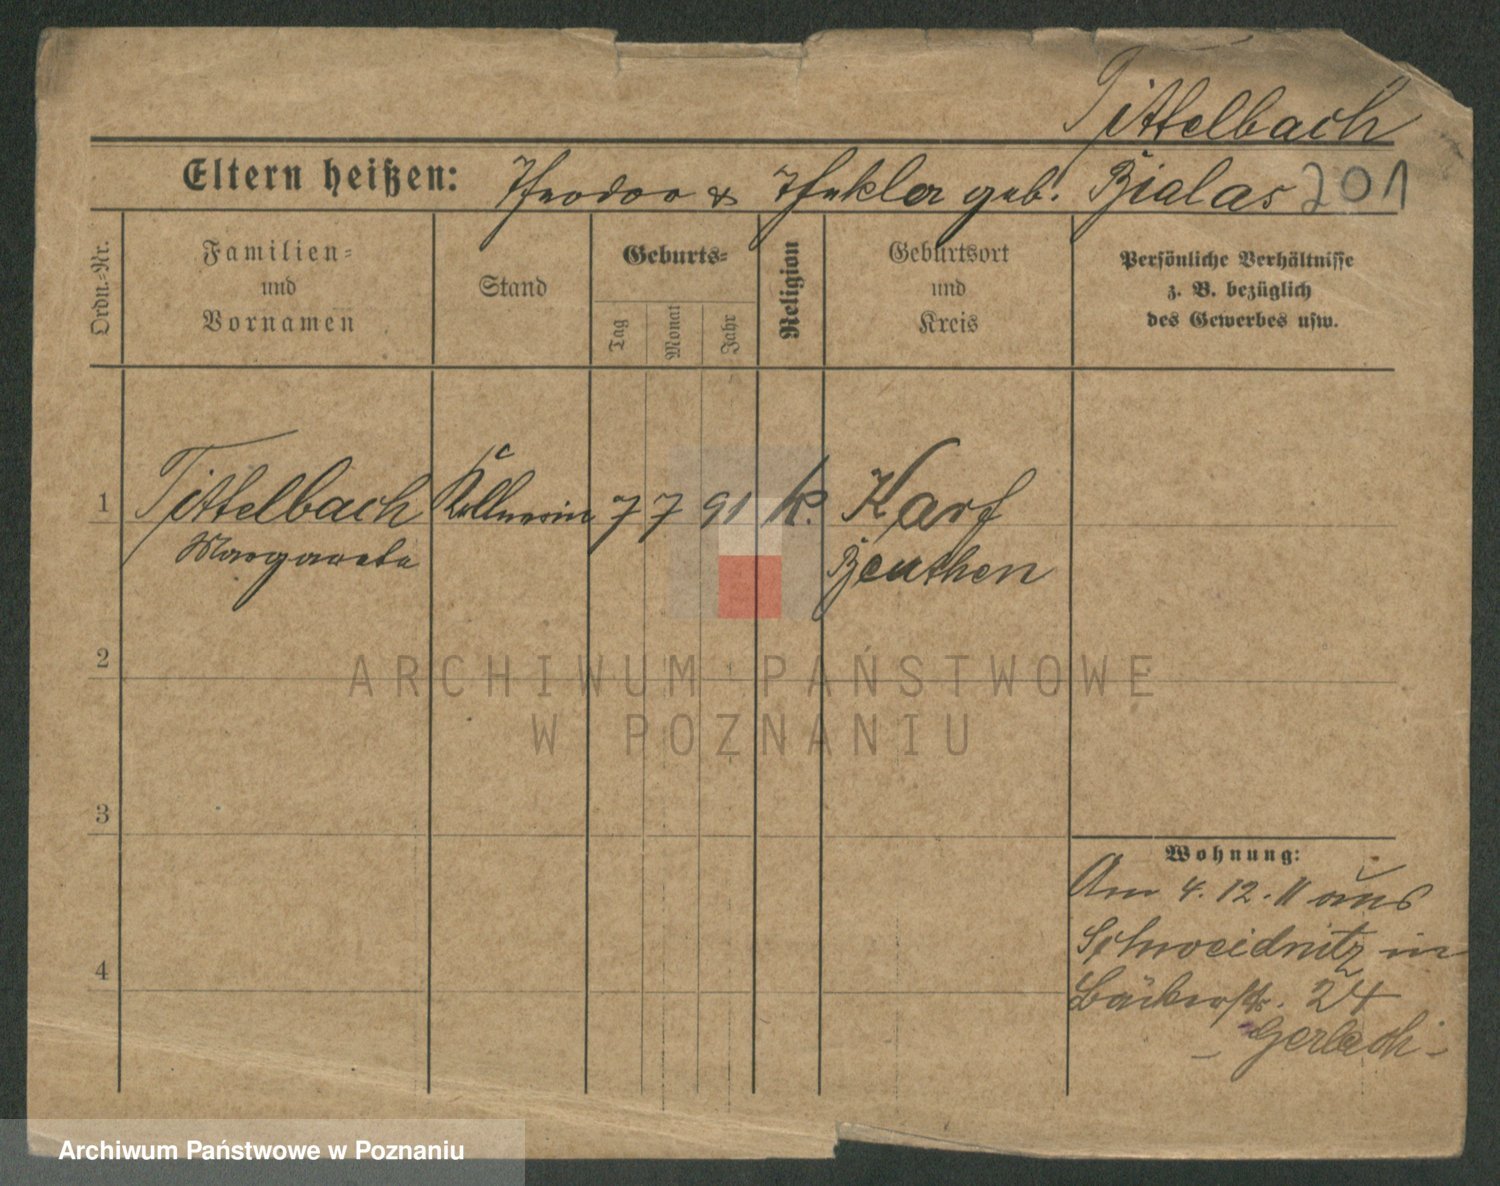 Tittelbach
Eltern heißen: Theodor & Thekla geb. Bialas 201
Ordn.-Nr.
Familien-
und
Vornamen
Stand
Geburts-
Tag
Monat
Jahr
Religion
Geburtsort
und
Kreis
Persönliche Verhältnisse
z. B. bezüglich
des Gewerbes usw.
1 Tittelbach Kellnerin 7 7 91 k. Karf
Margareta Beuthen
2
ARCHIWUM PAŃSTWOWE
W POZNANIU
3
Wohnung:
Am 4. 12. 11 aus
Schweidnitz in
Bäckerstr. 24
- Gerlach -
4
Archiwum Państwowe w Poznaniu